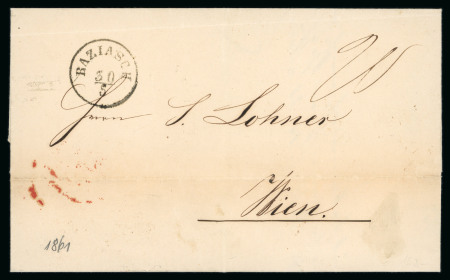 BAZIASCH
30
5
Herrn S. Lohner
Wien.
1861